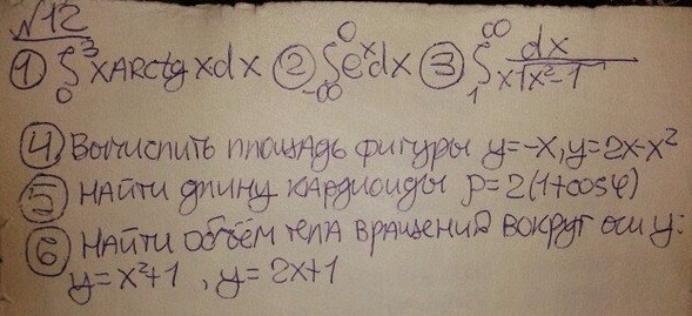 №12
① ∫₀³ xarctg xdx ② ∫₋∞⁰ eˣdx ③ ∫₁^∞ dx/(x√(x²-1))
④ Вычислить площадь фигуры y=-x, y=2x-x²
⑤ найти длину кардиоиды ρ=2(1+cosφ)
⑥ найти объём тела вращения вокруг оси y:
y=x²+1, y=2x+1